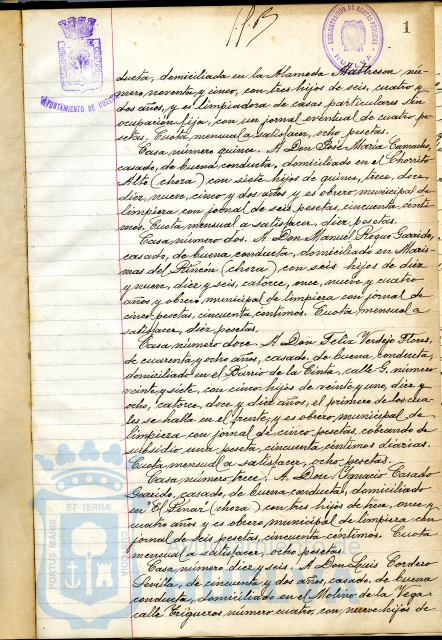 1
AYUNTAMIENTO DE HUELVA
ADMINISTRACIÓN DE RENTAS PÚBLICAS
HUELVA
ducta, domiciliada en la Alameda Matheson nú-
mero noventa y cinco, con tres hijos de seis, cuatro y
dos años, y es limpiadora de casas particulares sin
ocupación fija, con un jornal eventual de cuatro pe-
setas. Cuota mensual a satisfacer, ocho pesetas.
Casa número quince. A Don José María Camacho,
casado, de buena conducta, domiciliado en el Chorrito
Alto (choza) con siete hijos de quince, trece, doce,
diez, nueve, cinco y dos años y es obrero municipal de
limpieza con jornal de seis pesetas, cincuenta cénti-
mos. Cuota mensual a satisfacer, diez pesetas.
Casa número dos. A Don Manuel Roque Garrido,
casado, de buena conducta, domiciliado en Maris-
mas del Rincón (choza) con seis hijos de diez
y nueve, diez y seis, catorce, once, nueve y cuatro
años y obrero municipal de limpieza con jornal de
cinco pesetas, cincuenta céntimos. Cuota mensual a
satisfacer, diez pesetas.
Casa número doce. A Don Feliz Verdejo Flores,
de cuarenta y ocho años, casado, de buena conducta,
domiciliado en el Barrio de la Cinta, calle G. número
veinte y siete, con cinco hijos de veinte y uno, diez y
ocho, catorce, doce y diez años, el primero de los cua-
les se halla en el frente, y es obrero municipal de
limpieza con jornal de cinco pesetas, cobrando de
subsidio una peseta, cincuenta céntimos diarias.
Cuota mensual a satisfacer, ocho pesetas.
Casa número trece. A Don Ignacio Casado
Garrido, casado, de buena conducta, domiciliado
en "El Pinar" (choza) con tres hijos de trece, once y
cuatro años y es obrero municipal de limpieza con
jornal de seis pesetas, cincuenta céntimos. Cuota
mensual a satisfacer, ocho pesetas.
Casa número diez y seis. A Don Luis Cordero
Sevilla, de cincuenta y dos años, casado, de buena
conducta, domiciliado en el Molino de la Vega
calle Trigueros número cuatro, con nueve hijos de
PORTUS MARIS ET TERRAE CUSTODIA